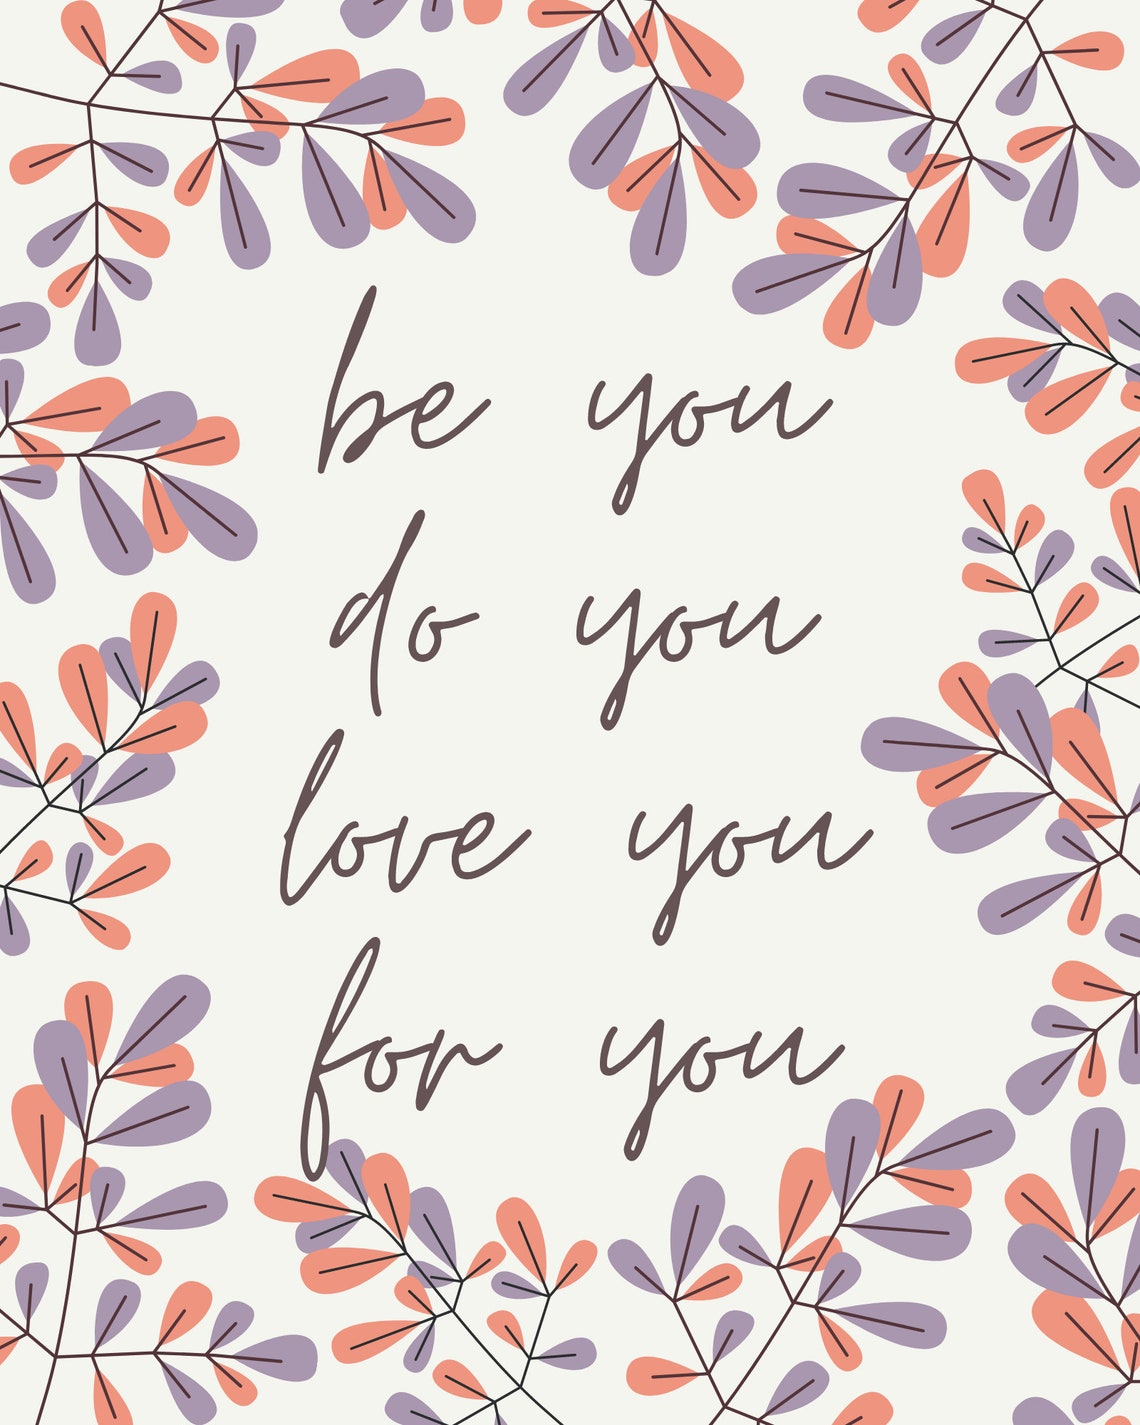 be you
do you
love you
for you